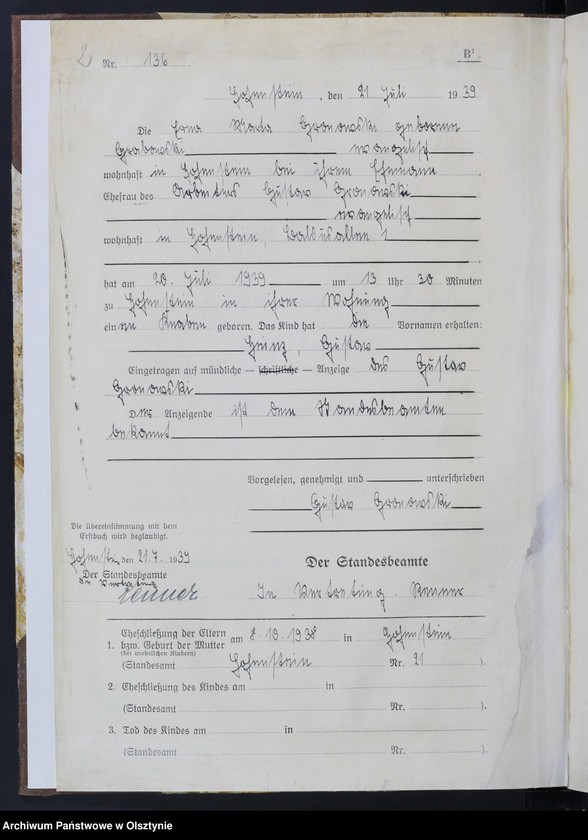 2 Nr. 136 B¹.
Hohenstein, den 21 Juli 1939
Die Erna Marta Gronowski geborene
Grabowski evangelisch
wohnhaft in Hohenstein bei ihrem Ehemann
Ehefrau des Arbeiters Gustav Gronowski
evangelisch
wohnhaft in Hohenstein, 1
hat am 20. Juli 1939 um 13 Uhr 30 Minuten
zu Hohenstein in ihrer Wohnung
einen Knaben geboren. Das Kind hat die Vornamen erhalten:
Heinz, Gustav
Eingetragen auf mündliche — schriftliche — Anzeige des Gustav
Gronowski
Der Anzeigende ist dem Standesbeamten
bekannt
Vorgelesen, genehmigt und unterschrieben
Gustav Gronowski
Die Übereinstimmung mit dem
Erstbuch wird beglaubigt.
Hohenstein, den 21.7. 1939
Der Standesbeamte
In Vertretung
Der Standesbeamte
In Vertretung.
Eheschließung der Eltern am 8. 10. 1938 in Hohenstein
1. bzw. Geburt der Mutter
(bei unehelichen Kindern)
(Standesamt Hohenstein Nr. 21 ).
2. Eheschließung des Kindes am in
(Standesamt Nr. ).
3. Tod des Kindes am in
(Standesamt Nr. ).
Archiwum Państwowe w Olsztynie